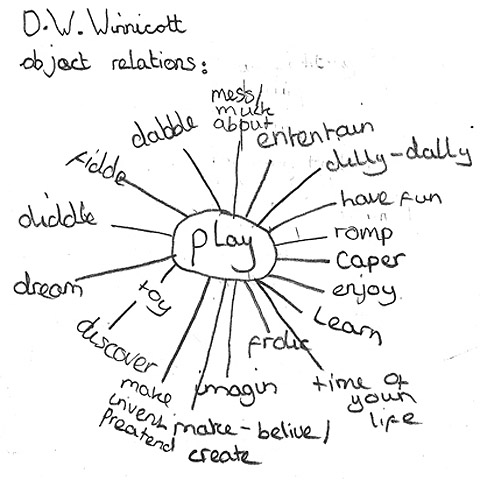 D.W. Winnicott
object relations:
mess/
muck
about
entertain
dilly-dally
have fun
romp
caper
enjoy
Learn
time of
your
life
frolic
make-belive/
create
imagin
invent
preatend
make
toy
discover
dream
diddle
fidde
dabble
play